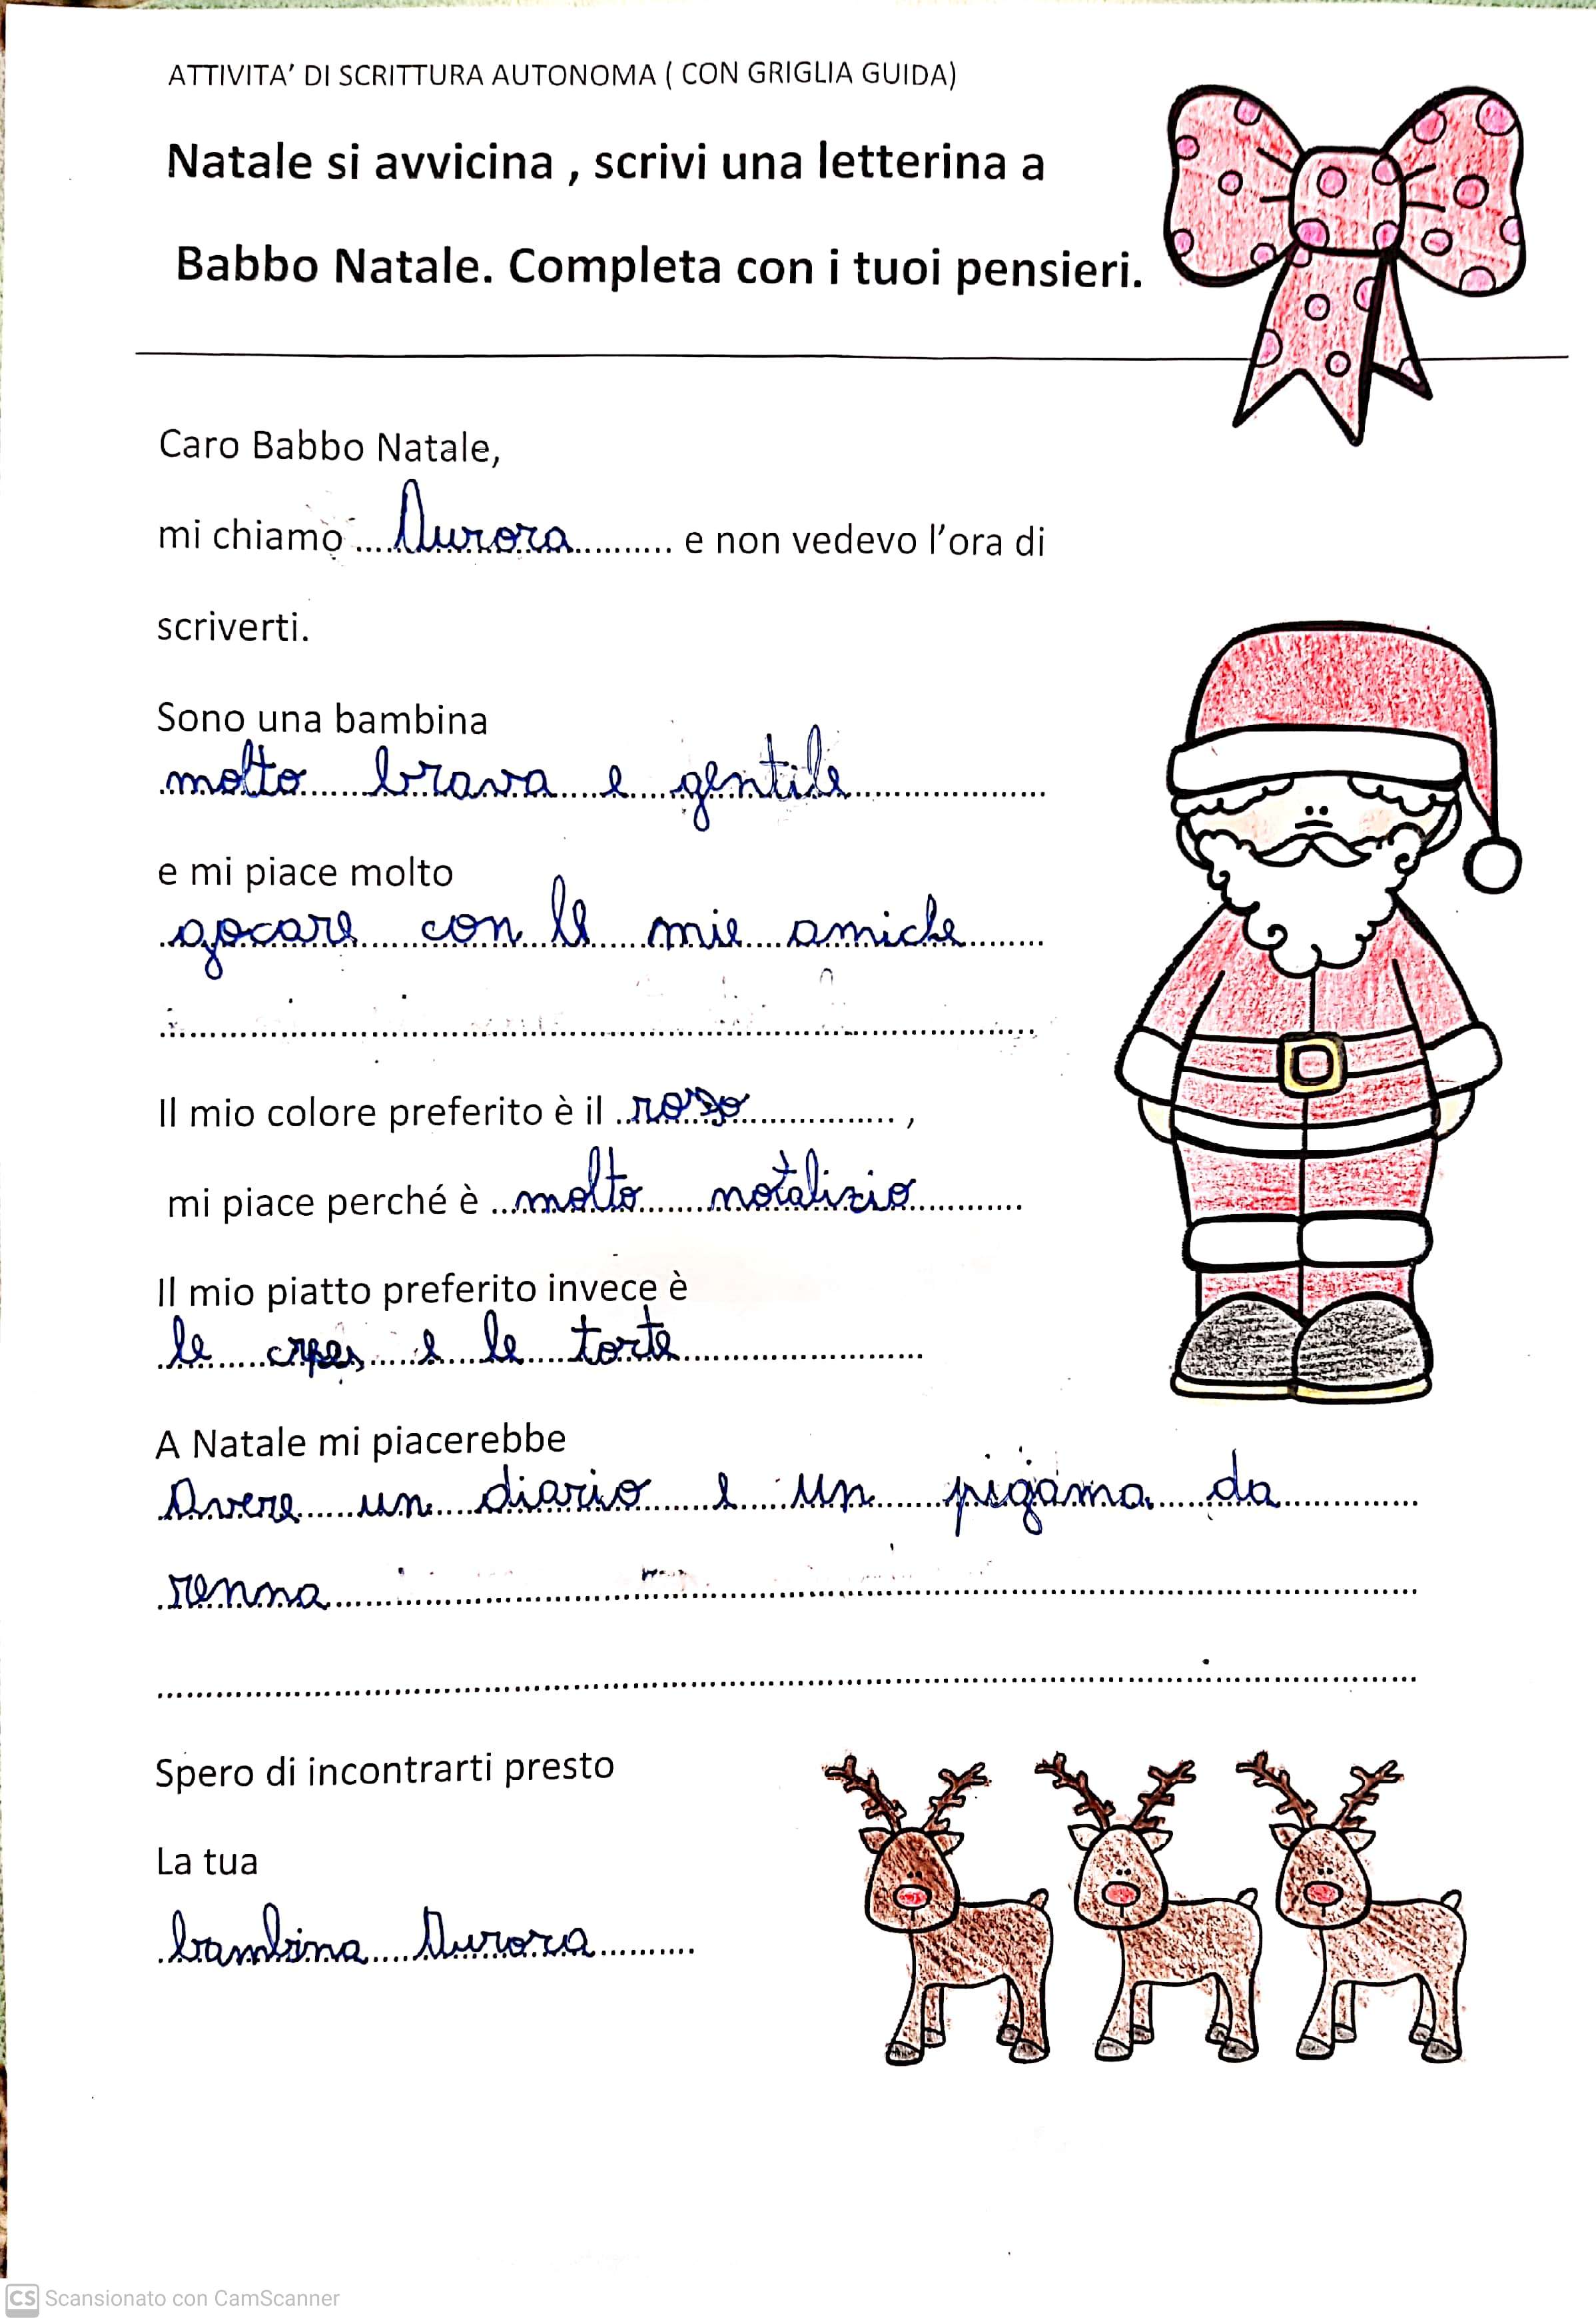 ATTIVITA' DI SCRITTURA AUTONOMA ( CON GRIGLIA GUIDA)
Natale si avvicina , scrivi una letterina a
Babbo Natale. Completa con i tuoi pensieri.
Caro Babbo Natale,
mi chiamo ... Aurora ... e non vedevo l'ora di
scriverti.
Sono una bambina
molto brava e gentile
e mi piace molto
gocare con le mie amiche
Il mio colore preferito è il ... ,
mi piace perché è ... molto natalizio
Il mio piatto preferito invece è
le e le torte
A Natale mi piacerebbe
Avere un diario e un pigama da
renna
Spero di incontrarti presto
La tua
bambina Aurora
CS Scansionato con CamScanner